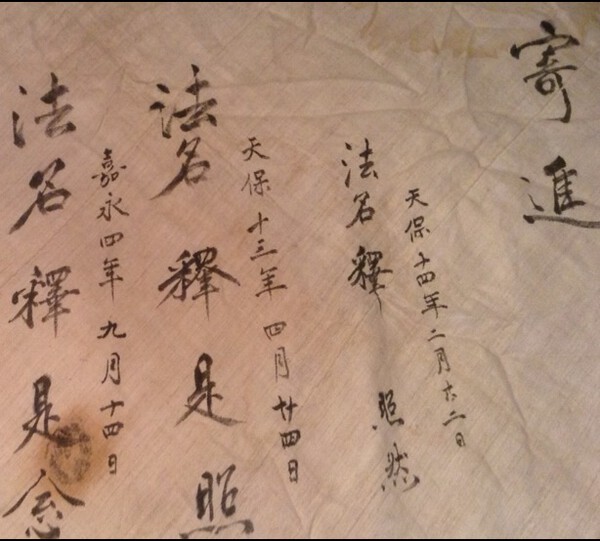 寄進
天保十四年二月六二日
法名釋照然
天保十三年四月廿四日
法名釋是照
嘉永四年九月十四日
法名釋是念